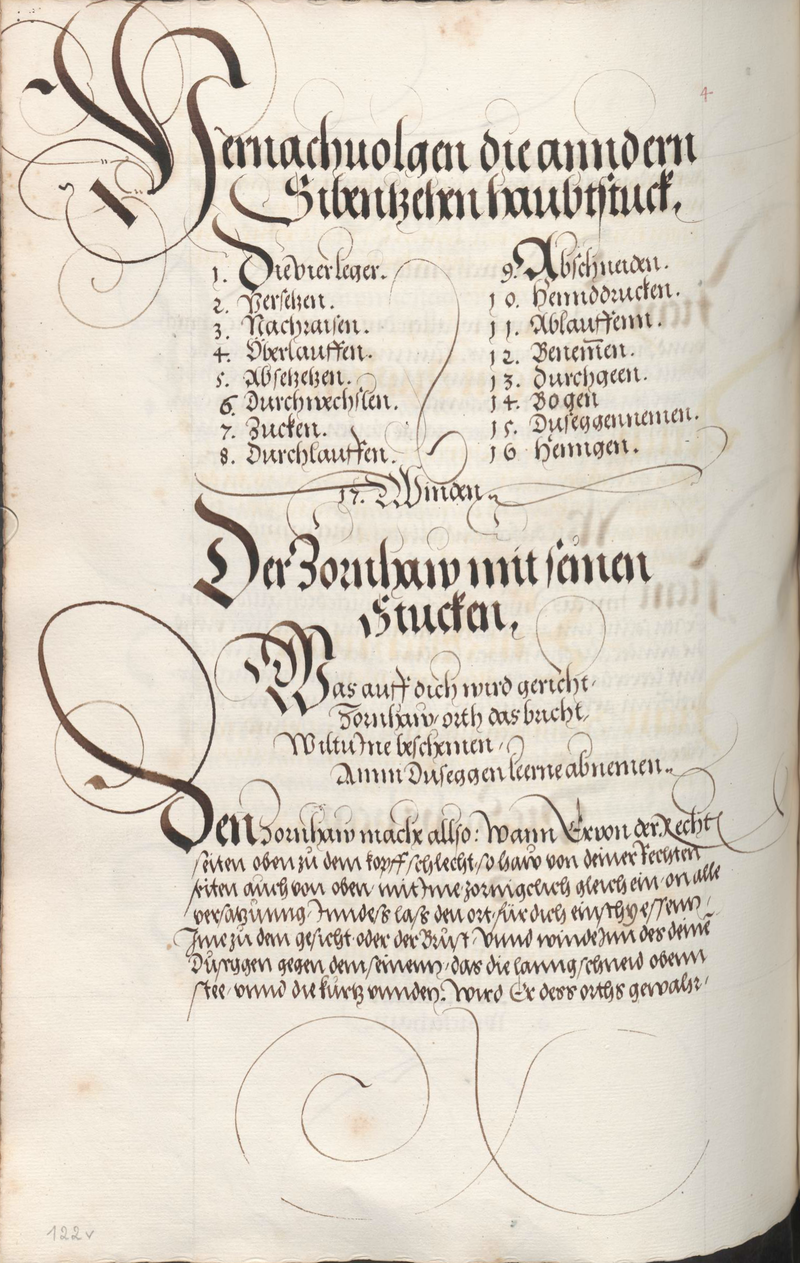 4
Hernachuolgen die anndern
Sibentzehen haubtstuck,
1. Die vier leger.
2. Versetzen.
3. Nachraisen.
4. Vberlauffen.
5. Absetzetzen.
6. Durchwechslen.
7. Zucken.
8. Durchlauffen.
9. Abschneiden.
10. Hennddrucken.
11. Ablauffenn.
12. Benem̅en.
13. Durchgeen.
14. Bogen
15. Duseggen nemen.
16 Henngen.
17. Winden.
Der Zornhaw mit seinen
Stucken,
Was auff dich wird gericht,
Zornhaw, orth das bricht,
Wiltu Ine beschemen,
Amm Duseggen leerne abnemen.
Den Zornhaw mache allso: Wann Er von der Recht
seiten oben zu dem kopff schlecht, so haw von deiner Rechten
seiten auch von oben mit Ime zornigclich gleich ein, on alle
versatzunng, Inndeß laß den ort für dich einschyessenn,
Ime zu dem gesicht oder der Brust, vnnd winde Inn des deine̅
Dusyggen gegen dem seinenn, das die lanng schneid obenn
stee, vnnd die kurtz vnnden. Wird Er dess orths gewahr,
122v